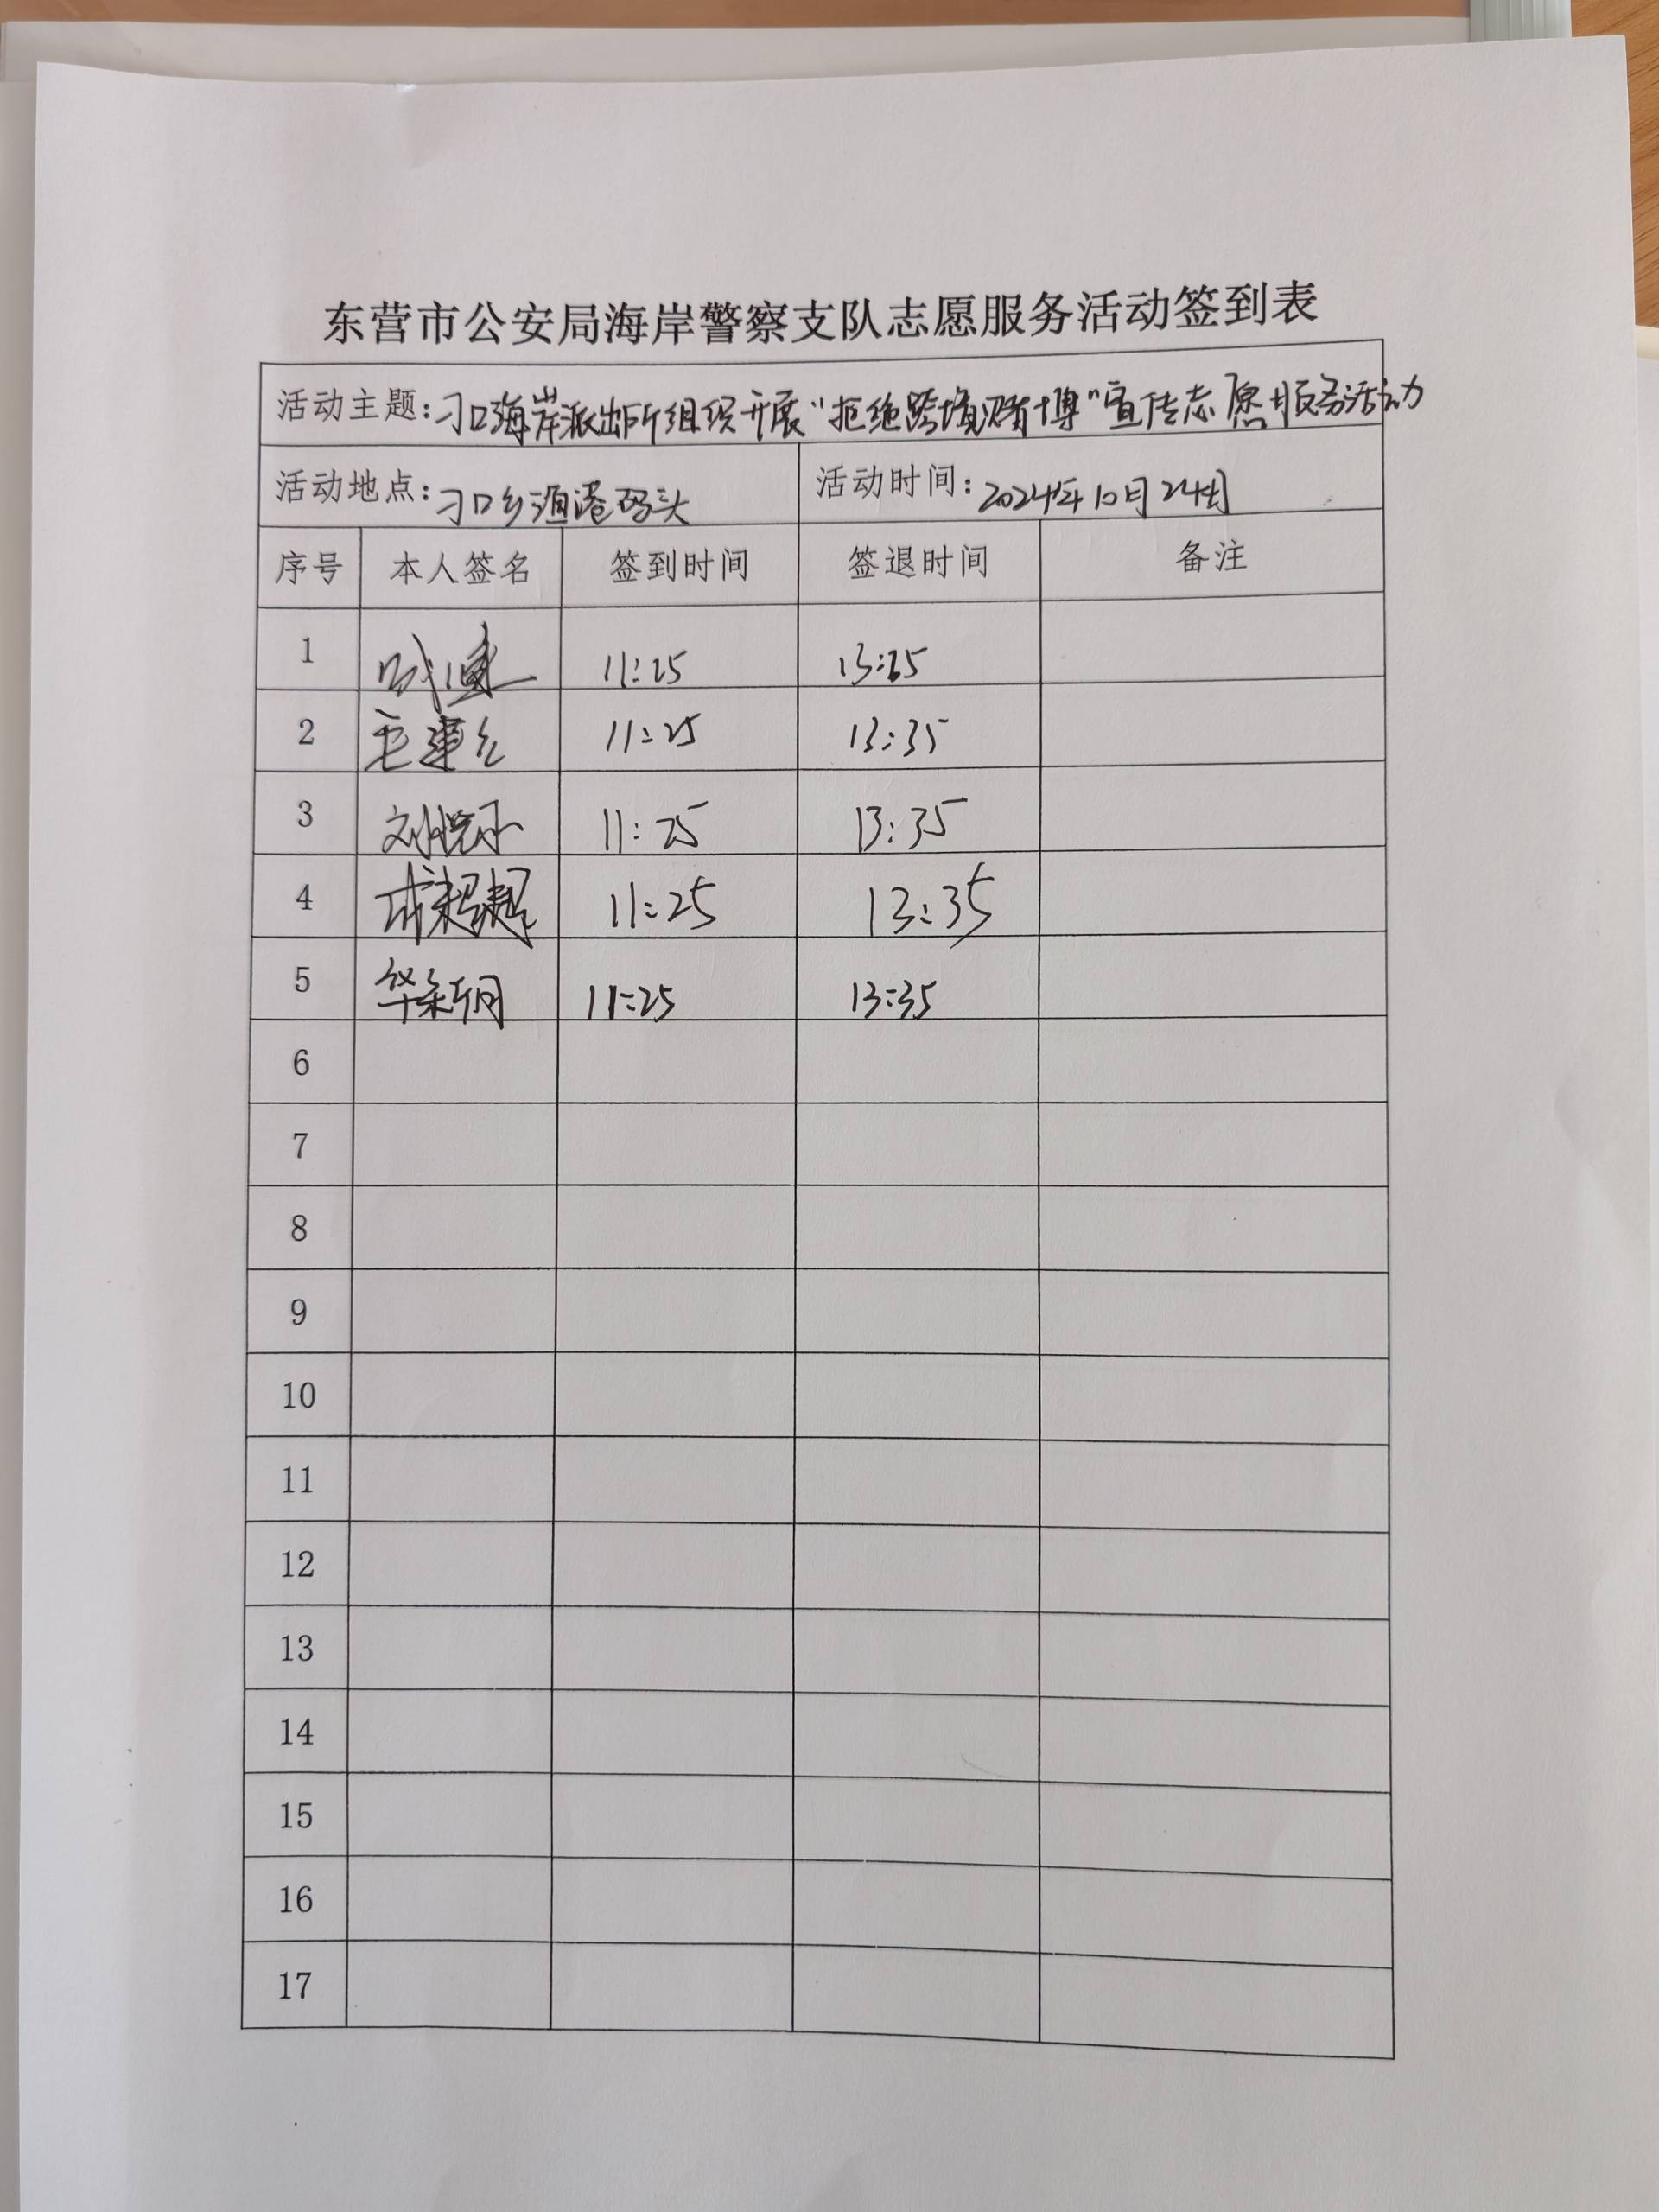 东营市公安局海岸警察支队志愿服务活动签到表
活动主题:刁口海岸派出所组织开展“拒绝跨境赌博”宣传志愿服务活动
活动地点:刁口乡渔港码头 活动时间:2024年10月24日
序号 本人签名 签到时间 签退时间 备注
1 11:25 13:35
2 11:25 13:35
3 刘 11:25 13:35
4 11:25 13:35
5 11:25 13:35
6
7
8
9
10
11
12
13
14
15
16
17